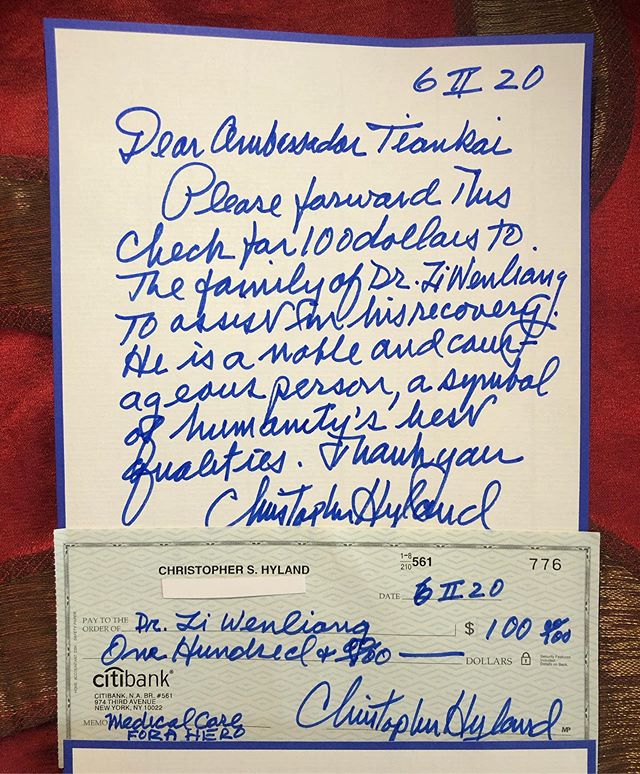 6 II 20
Dear Ambassador Tiankai
Please forward This
check for 100 dollars to.
The family of Dr. Li Wenliang
To assist in his recovery.
He is a noble and cour-
ageous person, a symbol
of humanity's best
qualities. Thank you
Christopher Hyland
CHRISTOPHER S. HYLAND
1-8
210 561
776
DATE 6 II 20
PAY TO THE
ORDER OF Dr. Li Wenliang $ 100 00/00
One Hundred + 00/00 DOLLARS
Security Features
Included
Details on Back
citibank®
CITIBANK, N.A. BR. #561
974 THIRD AVENUE
NEW YORK, NY 10022
MEMO Medical Care
FOR A HERO
Christopher Hyland
MP